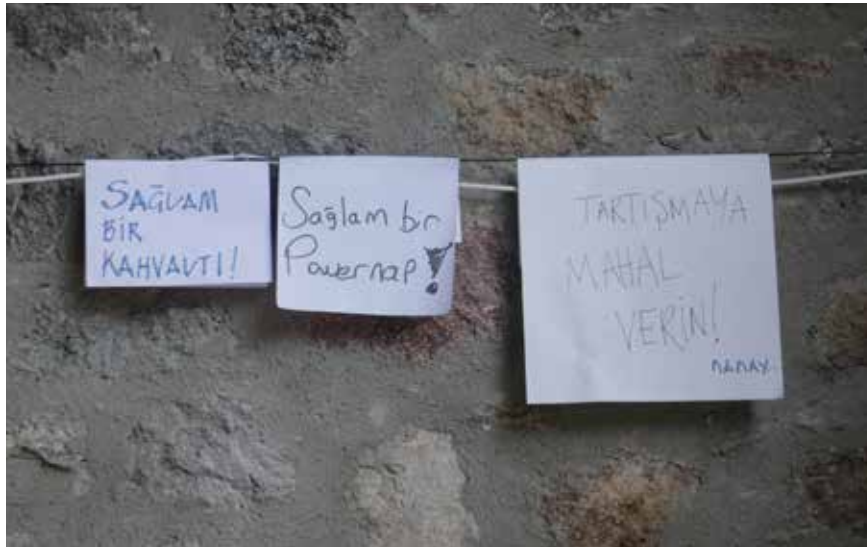 SAĞLAM
BİR
KAHVALTI!
Sağlam bir
Powernap!
TARTIŞMAYA
MAHAL
VERİN!